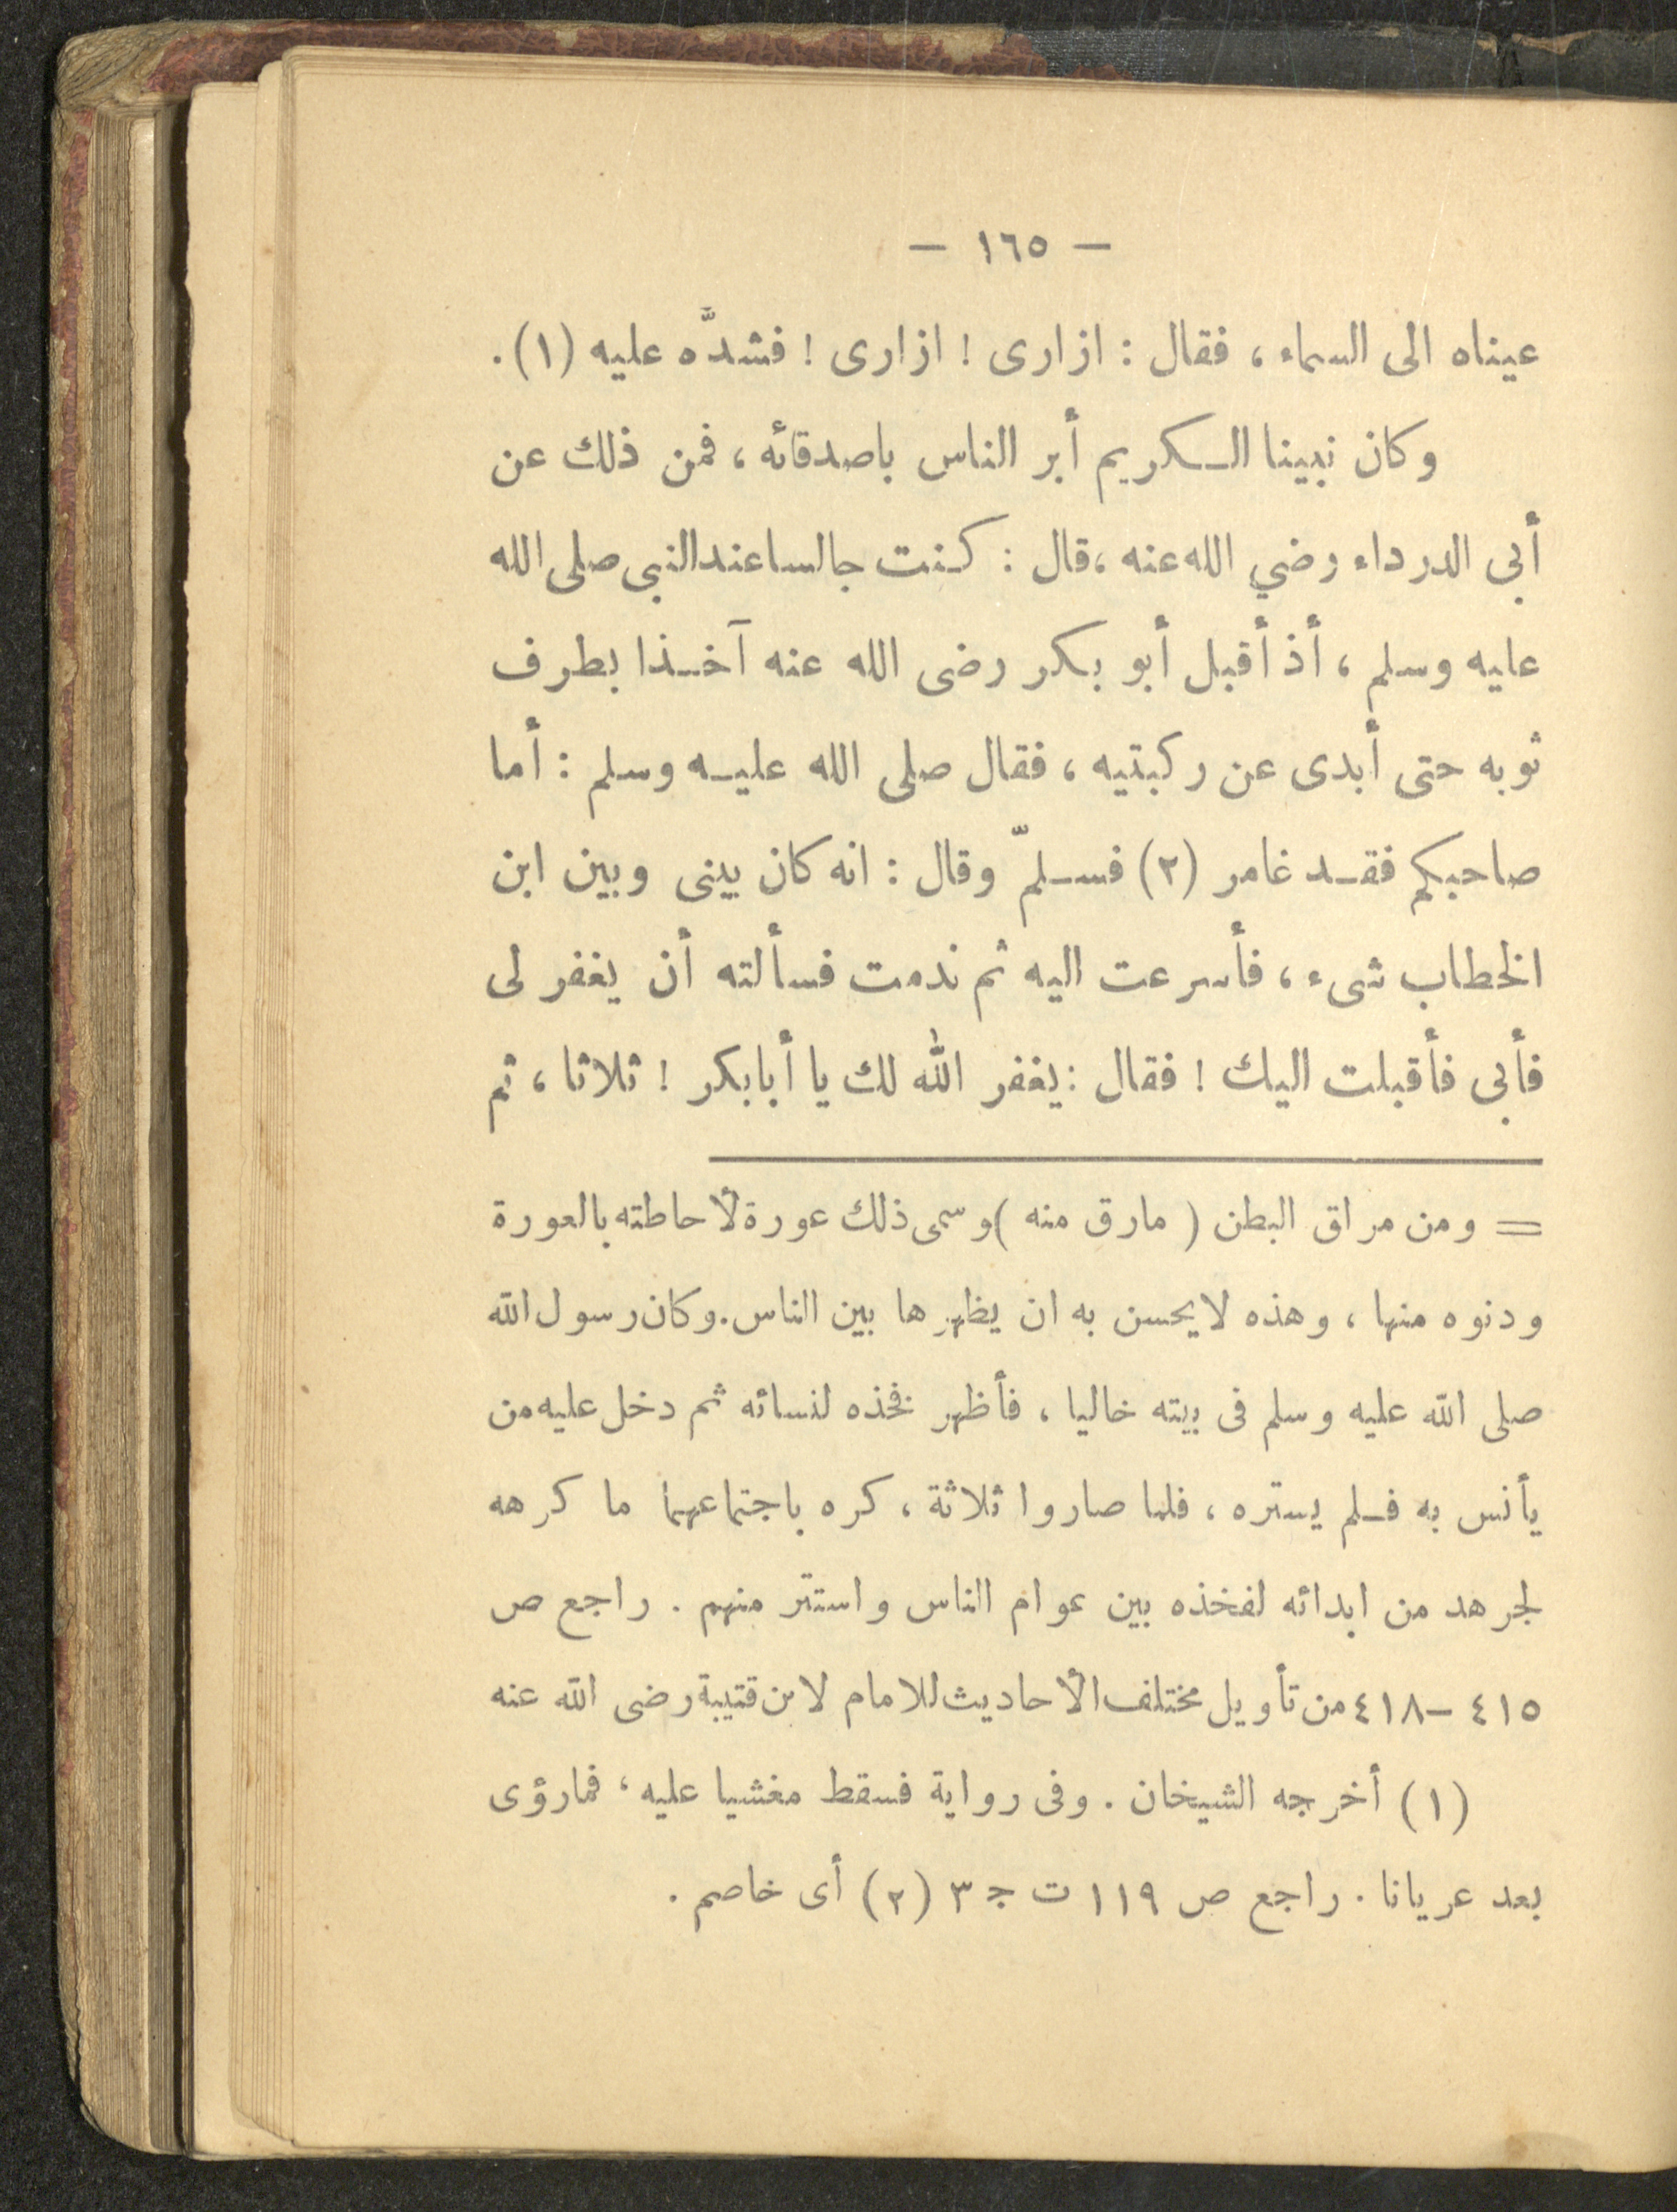 — ١٦٥ —
عيناه الى السماء ، فقال : ازارى ! ازارى ! فشدَّه عليه (١) .
وكان نبينا الكريم أبر الناس باصدقائه ، فمن ذلك عن
أبى الدرداء رضي الله عنه ، قال : كنت جالسا عند النبى صلى الله
عليه وسلم ، أذ أقبل أبو بكر رضى الله عنه آخذا بطرف
ثوبه حتى أبدى عن ركبتيه ، فقال صلى الله عليه وسلم : أما
صاحبكم فقد غامر (٢) فسلمّ وقال : انه كان بينى وبين ابن
الخطاب شىء ، فأسرعت اليه ثم ندمت فسألته أن يغفر لى
فأبى فأقبلت اليك ! فقال : يغفر الله لك يا أبابكر ! ثلاثا ، ثم
= ومن مراق البطن ( مارق منه ) وسمى ذلك عورة لأحاطته بالعورة
ودنوه منها ، وهذه لايحسن به ان يظهرها بين الناس . وكان رسول الله
صلى الله عليه وسلم فى بيته خاليا ، فأظهر فخذه لنسائه ثم دخل عليه من
يأنس به فلم يستره ، فلما صاروا ثلاثة ، كره باجتماعهما ما كرهه
لجرهد من ابدائه لفخذه بين عوام الناس واستتر منهم . راجع ص
٤١٥ – ٤١٨ من تأويل مختلف الأحاديث للامام لابن قتيبة رضى الله عنه
(١) أخرجه الشيخان . وفى رواية فسقط مغشيا عليه ، فمارؤى
بعد عريانا . راجع ص ١١٩ ت ج ٣ (٢) أى خاصم .